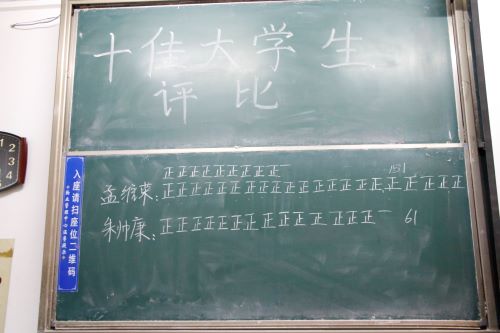 十佳大学生
评比
正正正正正正正正正一
151
孟维来:正正正正正正正正正正正正正正正正正正正正正
朱帅康:正正正正正正正正正正正正一 61
入座请扫座位二维码
1
2
3
4